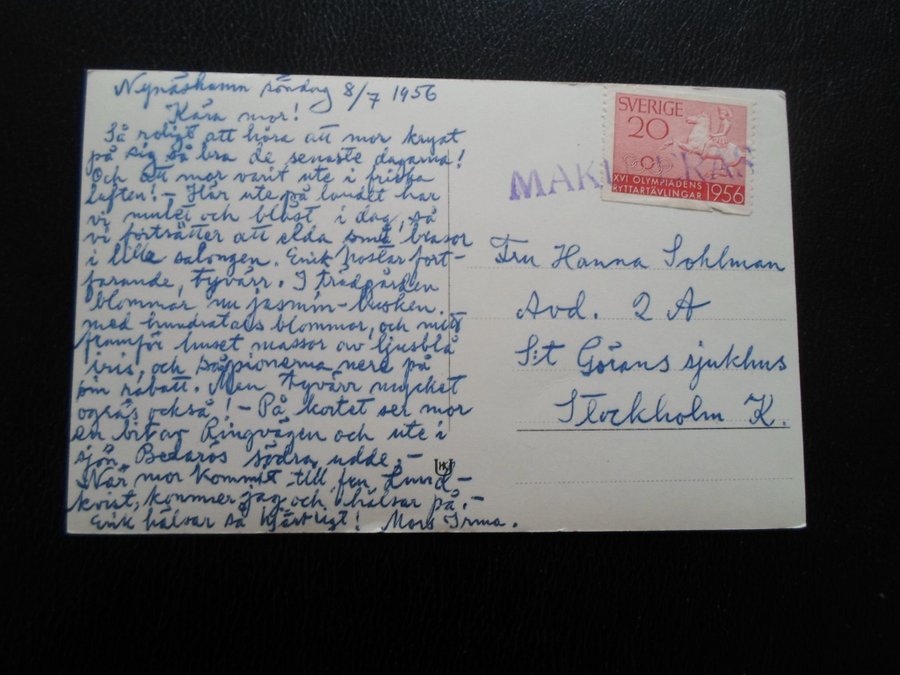 Nynäshamn söndag 8/7 1956
Kära mor!
Så roligt att höra att mor kryat
på sig så bra de senaste dagarna!
Och att mor varit ute i friska
luften! – Här ute på landet har
vi mulet och blåst i dag, så
vi fortsätter att elda små brasor
i lilla salongen. Erik hostar fort-
farande, tyvärr. I trädgården
blommar nu jasmin-
med hundratals blommor, och mitt
framför huset massor av ljusblå
iris, och pionerna nere på
sin rabatt. Men tyvärr mycket
ogräs också! – På kortet ser mor
en bit av Ringvägen och ute i
sjön Bedarös södra udde. –
När mor kommit till fru Lund-
kvist, kommer jag och hälsar på. –
Erik hälsar så hjärtligt! Mors Irma.
SVERIGE
20
XVI OLYMPIADENS
RYTTARTÄVLINGAR 1956
MAK
Fru Hanna Sohlman
Avd. 2 A
S:t Görans sjukhus
Stockholm K.